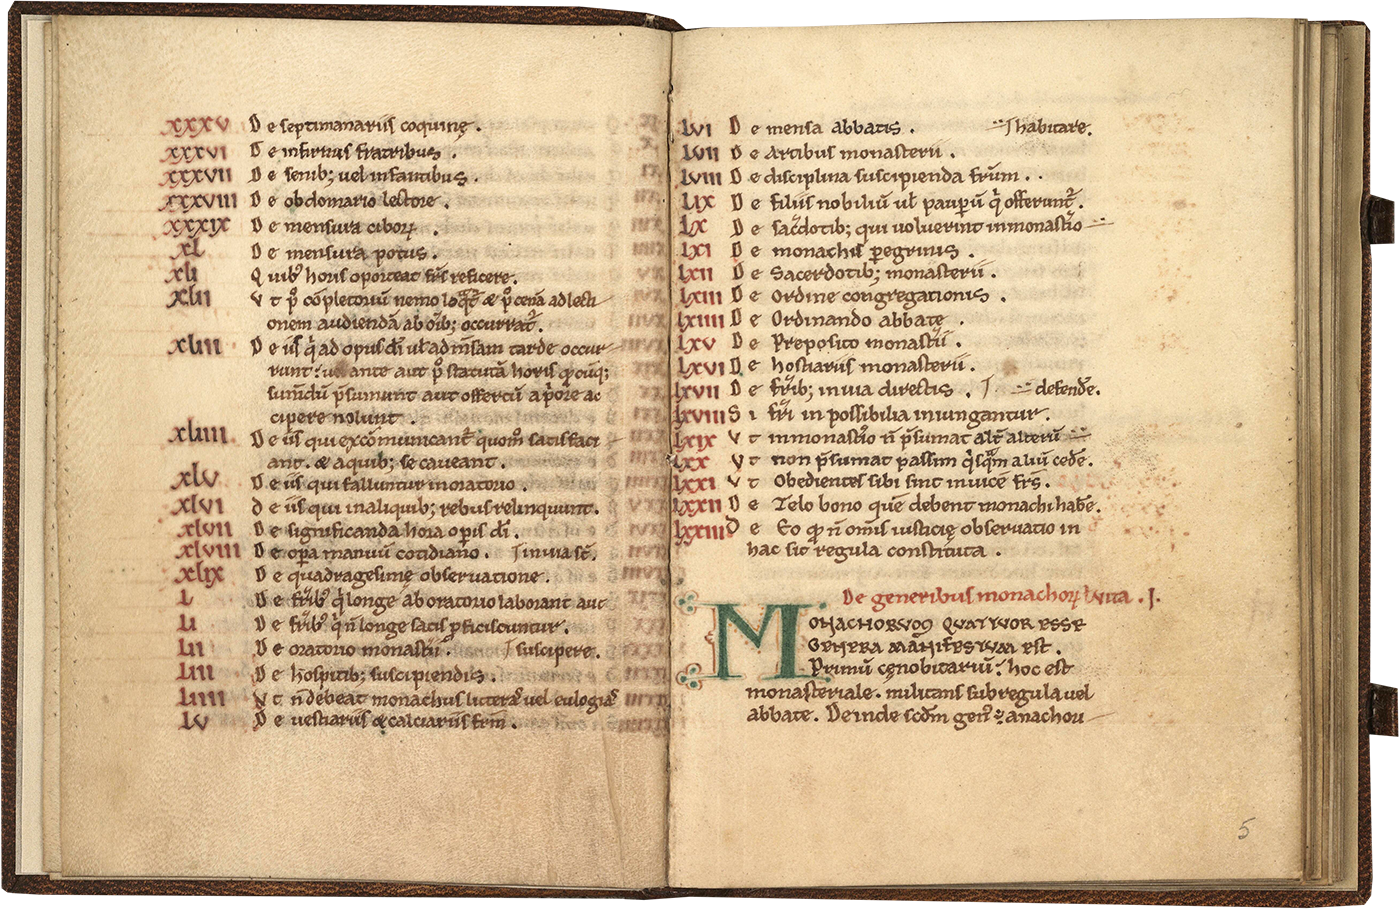 XXXV De septimanariis coquinę.
XXXVI De infirmis fratribus.
XXXVII De senib; uel infantibus.
XXXVIII De obdomario lectore.
XXXIX De mensura ciboꝝ.
XL De mensura potus.
XLI Quib' horis oporteat fr̄s reficere.
XLII Vt p̊ cōpletoriū nemo & p̊ cenā ad lecti
onem audiendā ab oīb; occurrat̄.
XLIII De iis q̇ ad opus dī ut̄ ad m̄sam tarde occur
runt: uł ante aut p̊ statutā horis
p̄sumunt aut offertū a p̓ore ac
cipere nolunt.
XLIIII De iis qui excōmunicant̄ quom̊ satisfaci
ant. & a quib; se caueant.
XLV De iis qui falluntur inoratorio.
XLVI De iis qui inaliquib; rebus relinquunt.
XLVII De significanda hora opis dī.
XLVIII De opa manuū cotidiano. inuia st̄.
XLIX De quadragesimę obseruatione.
L De fr̄ib' q̇ longe ab oratorio laborant aut
LI De fr̄ib' q̇ n̄ longe satis ꝓficiscuntur.
LII De oratorio monastīi. suscipere.
LIII De hospitib; suscipiendis.
LIIII Vt n̄ debeat monachus litteras uel eulogias
LV De uestiariis & calciariis fr̄m.
LVI De mensa abbatis. habitare.
LVII De Artibus monasterii.
LVIII De disciplina suscipienda fr̄um..
LIX De filiis nobiliū ut̄ pauperū q̇ offerunt̄.
LX De sac̓dotib; qui uoluerint inmonast̓io
LXI De monachis ꝑegrinis.
LXII De Sacerdotib; monasterii.
LXIII De Ordine congregationis.
LXIIII De Ordinando abbate.
LXV De Preposito monast̓ii.
LXVI De hostiariis monasterii.
LXVII De fr̄ib; inuia directis. defendēe.
LXVIII Si fr̄i in possibilia iniungantur.
LXIX Vt inmonast̓io n̄ p̄sumat alt̓ alterū
LXX Vt non p̄sumat passim q̇sq̄am aliū cedēe.
LXXI Vt Obedientes sibi sint inuicē fr̄s.
LXXII De Telo bono quē debent monachi habēe.
LXXIII De Eo qđ n̄ omīs iusticię obseruatio in
hac sit regula constituta.
De generibus monachoꝝ uita. I.
MONACHORVM QVATVOR ESSE
GENERA MANIFESTVM EST.
Primū cęnobitariū: hoc est
monasteriale. militans sub regula uel
abbate. Deinde scđm gen̓: anachori
5